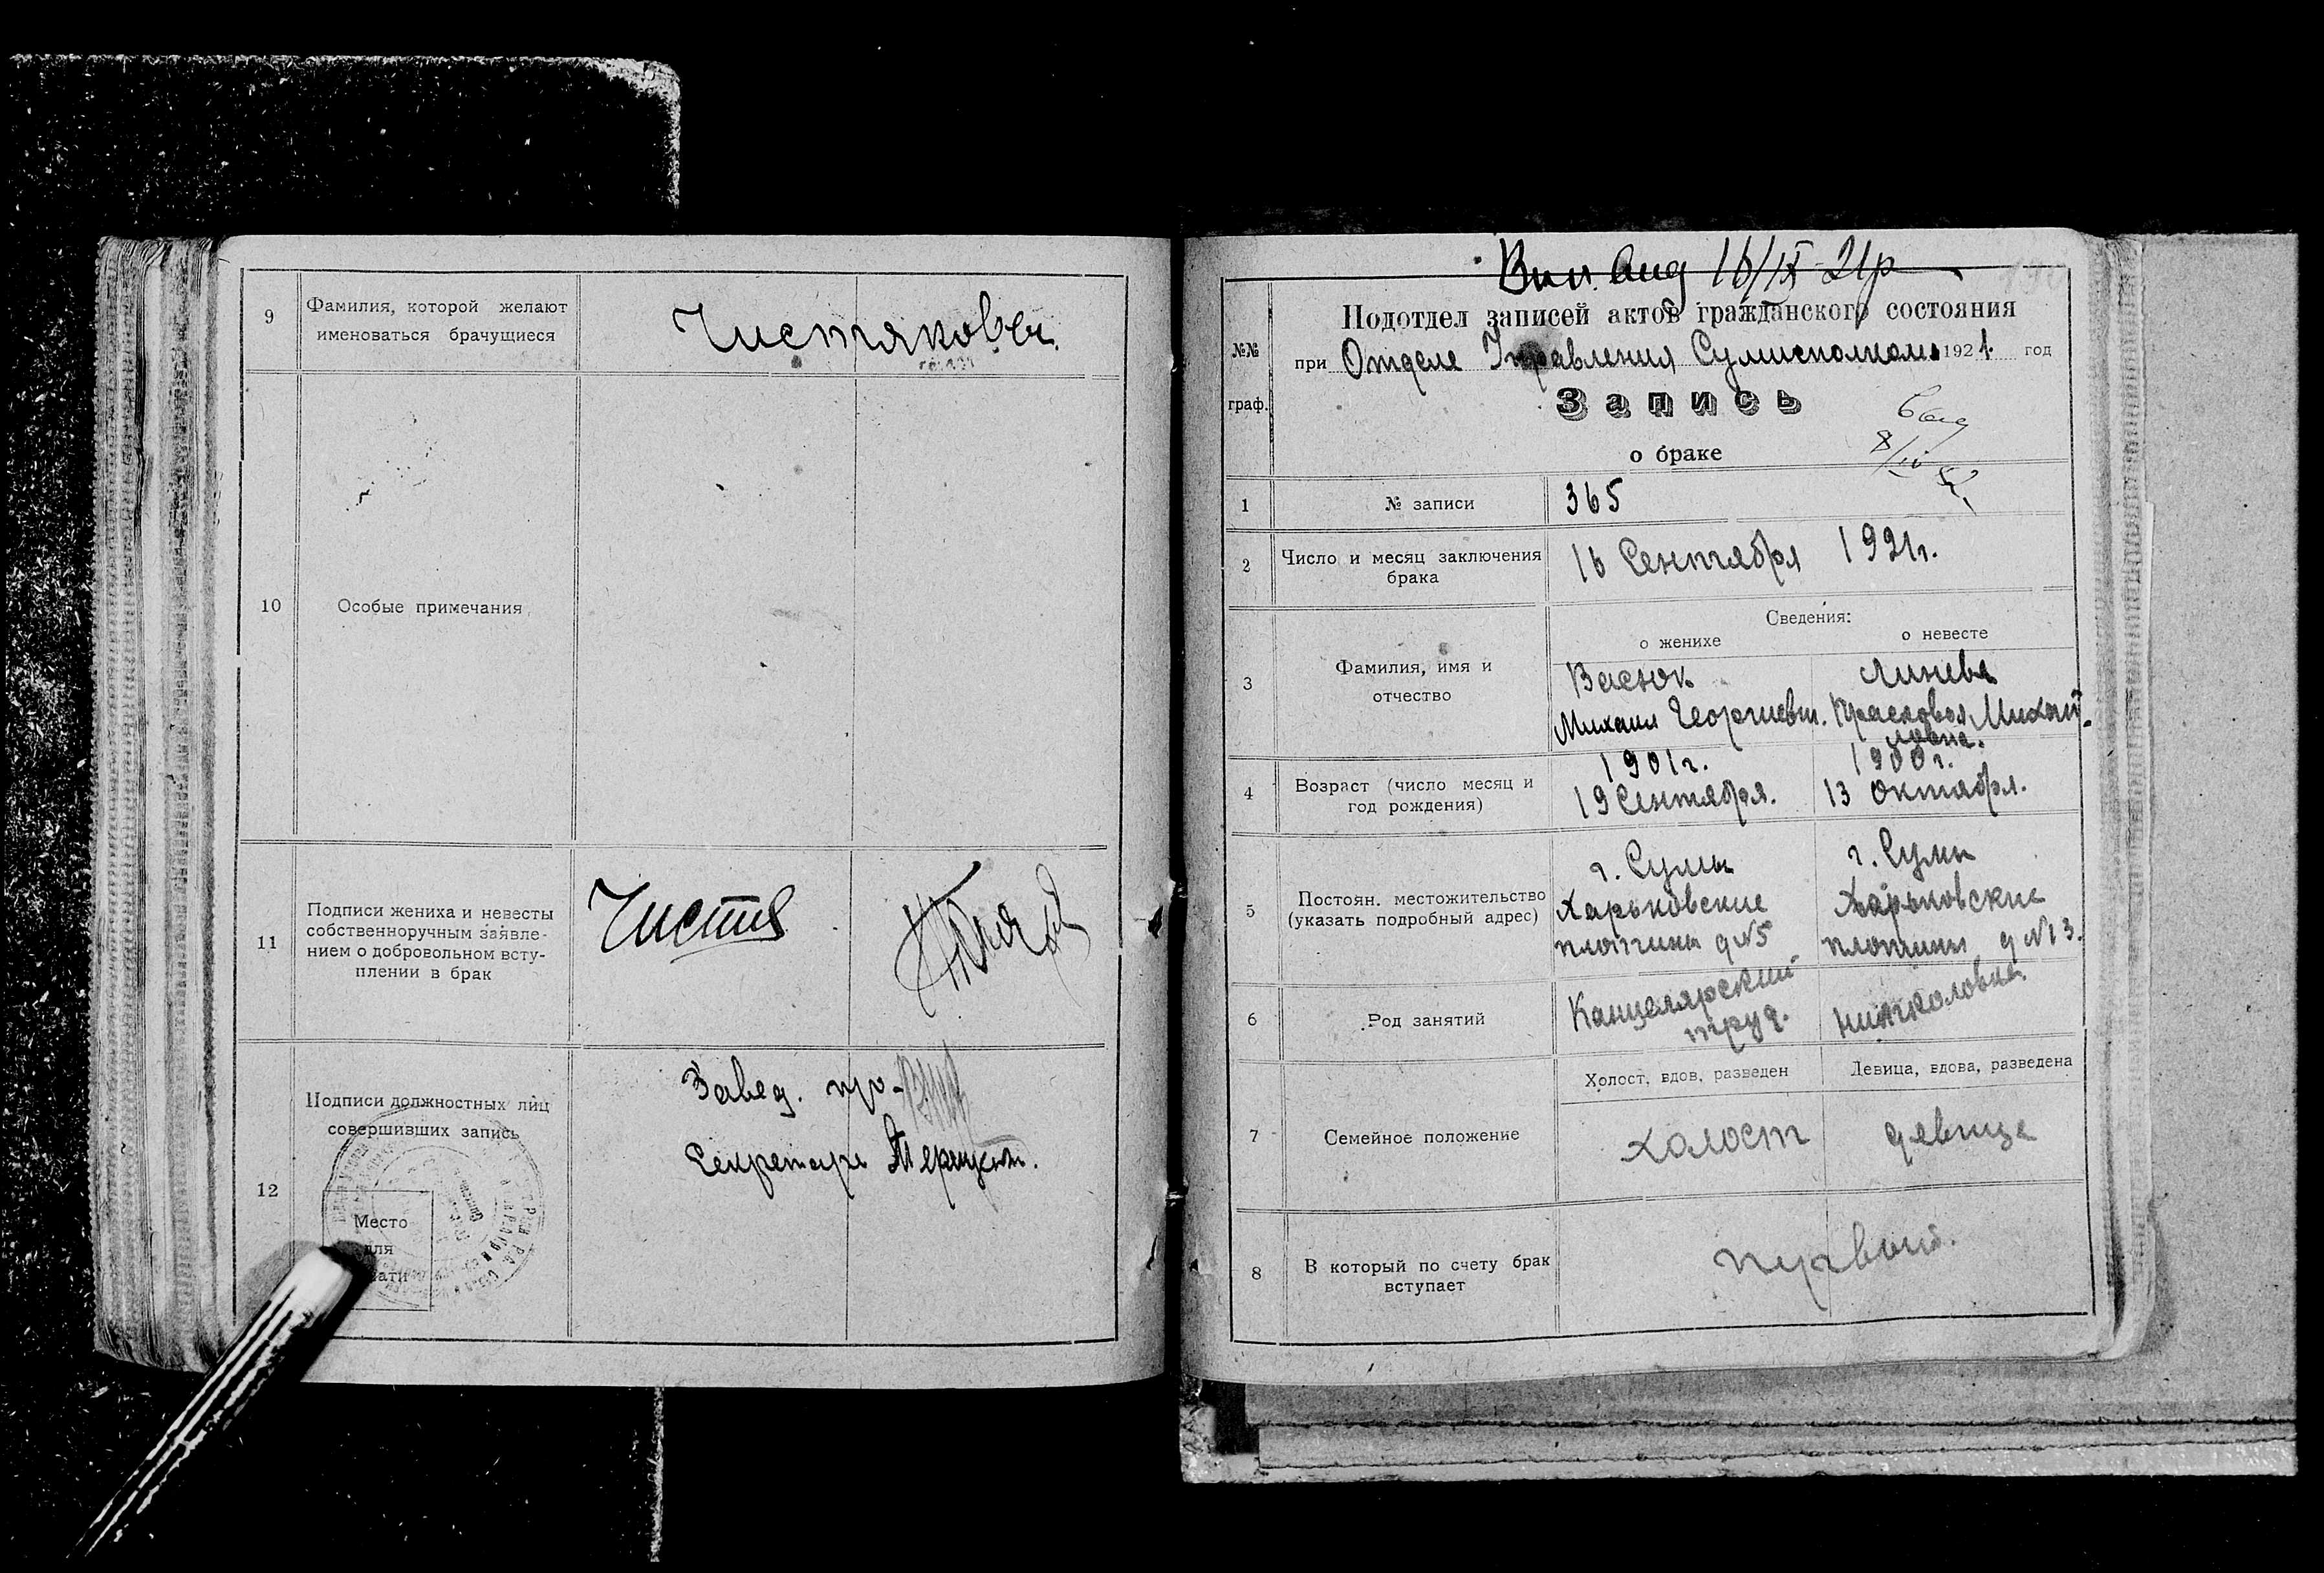 9
Фамилия, которой желают
именоваться брачущиеся
Чистяковы.
10
Особые примечания
11
Подписи жениха и невесты
собственноручным заявле-
нием о добровольном всту-
плении в брак
Чистяк
12
Подписи должностных лиц
совершивших запись
Завед. п/о-
Секретарь
Место
для
ати
16/IX 21р
Подотдел записей актов гражданского состояния
№№
граф.
при Отделе Управления Сумисполкома 1921 год
Запись
о браке
1
№ записи
365
2
Число и месяц заключения
брака
16 Сентября 1921г.
Сведения:
о женихе
о невесте
3
Фамилия, имя и
отчество
Васюк
Михаил Георгиевич.
Линева
Прасковья Михай-
ловна.
4
Возраст (число месяц и
год рождения)
1901г.
19 Сентября.
1900г.
13 Октября.
5
Постоян. местожительство
(указать подробный адрес)
г. Сумы
Харьковские
плотины д №5
г. Сумы
Харьковские
плотины д №13.
6
Род занятий
Канцелярский
труд.
7
Семейное положение
Холост, вдов, разведен
Девица, вдова, разведена
холост
девица
8
В который по счету брак
вступает
первый.